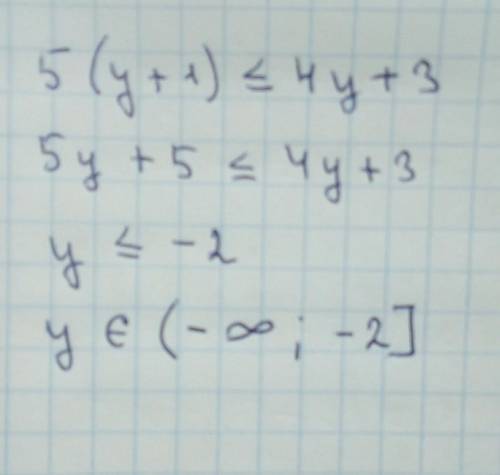 5(y+1) ≤ 4y+3
5y + 5 ≤ 4y+3
y ≤ -2
y ∈ (-∞; -2]